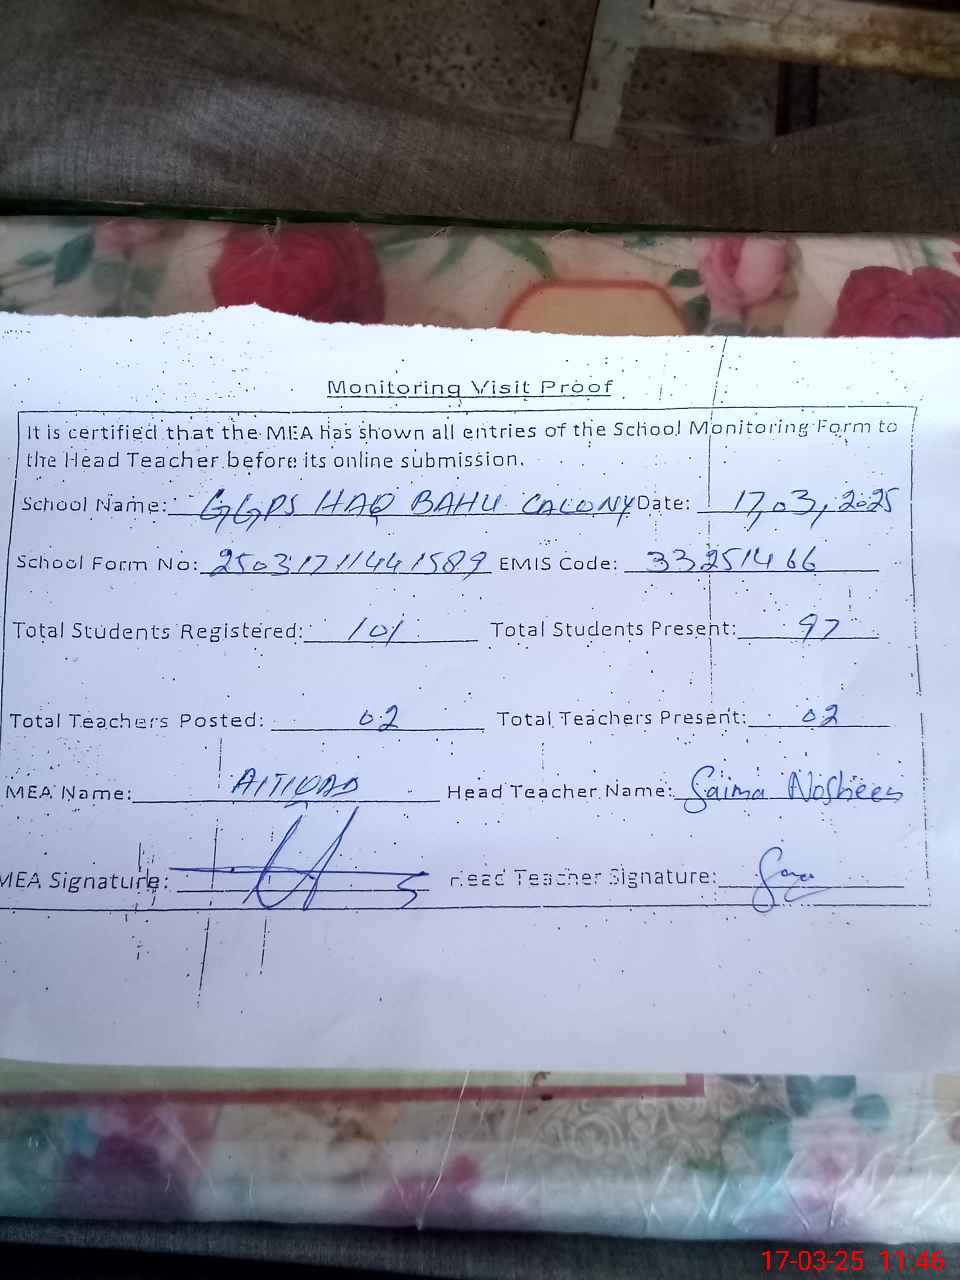 Monitoring Visit Proof
It is certified that the MEA has shown all entries of the School Monitoring Form to
the Head Teacher before its online submission.
School Name: GGPS HAQ BAHU CALONY Date: 17,03,2025
School Form No: 25031711441589 EMIS Code: 33251466
Total Students Registered: 101 Total Students Present: 97
Total Teachers Posted: 02 Total Teachers Present: 02
MEA Name: Head Teacher Name: Saima Nosheen
MEA Signature: Head Teacher Signature:
17-03-25 11:46